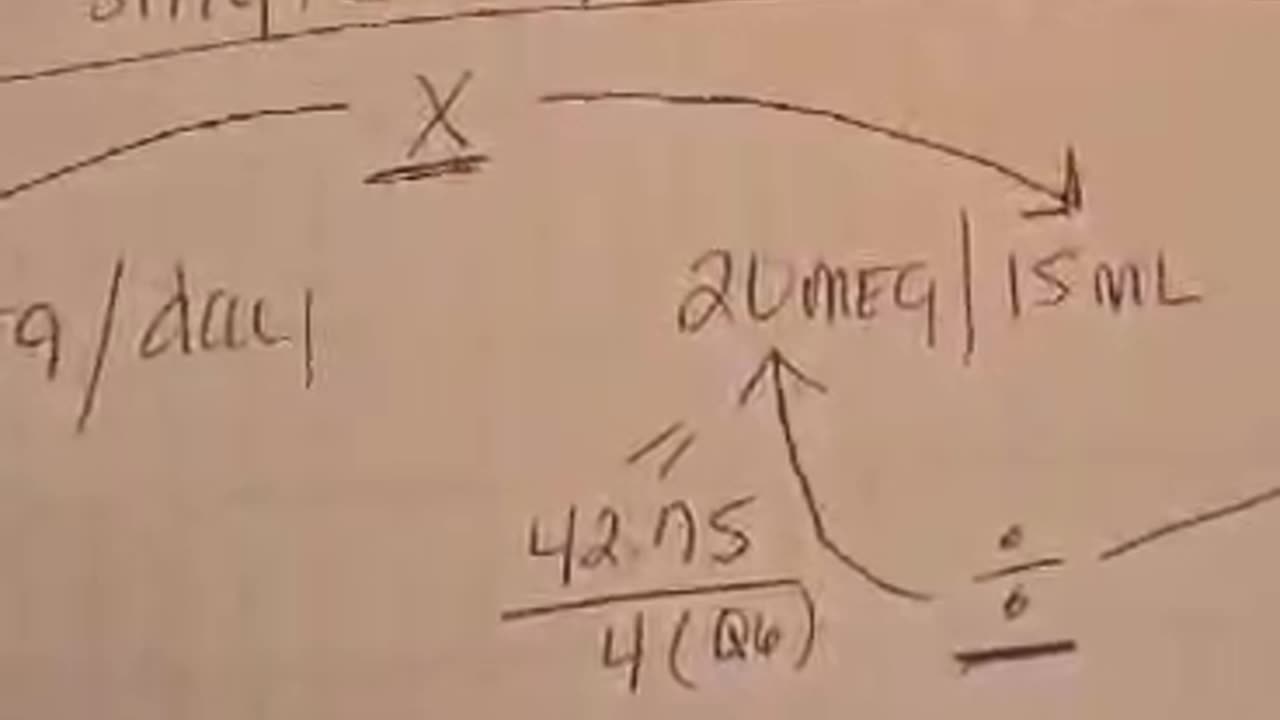 X
/day
20 MEQ | 15 ML
=
42.75
÷
4 (Q6)